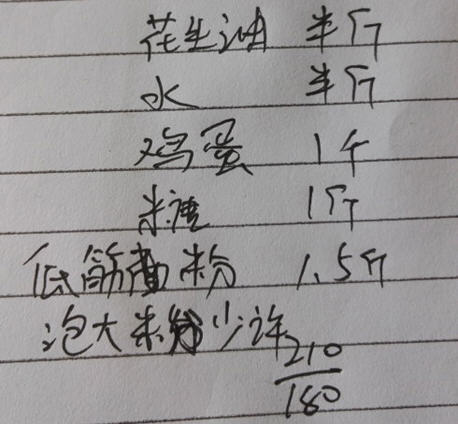 花生油 半斤
水 半斤
鸡蛋 1个
米糖 1斤
低筋面粉 1.5斤
泡大粉少许
210
180